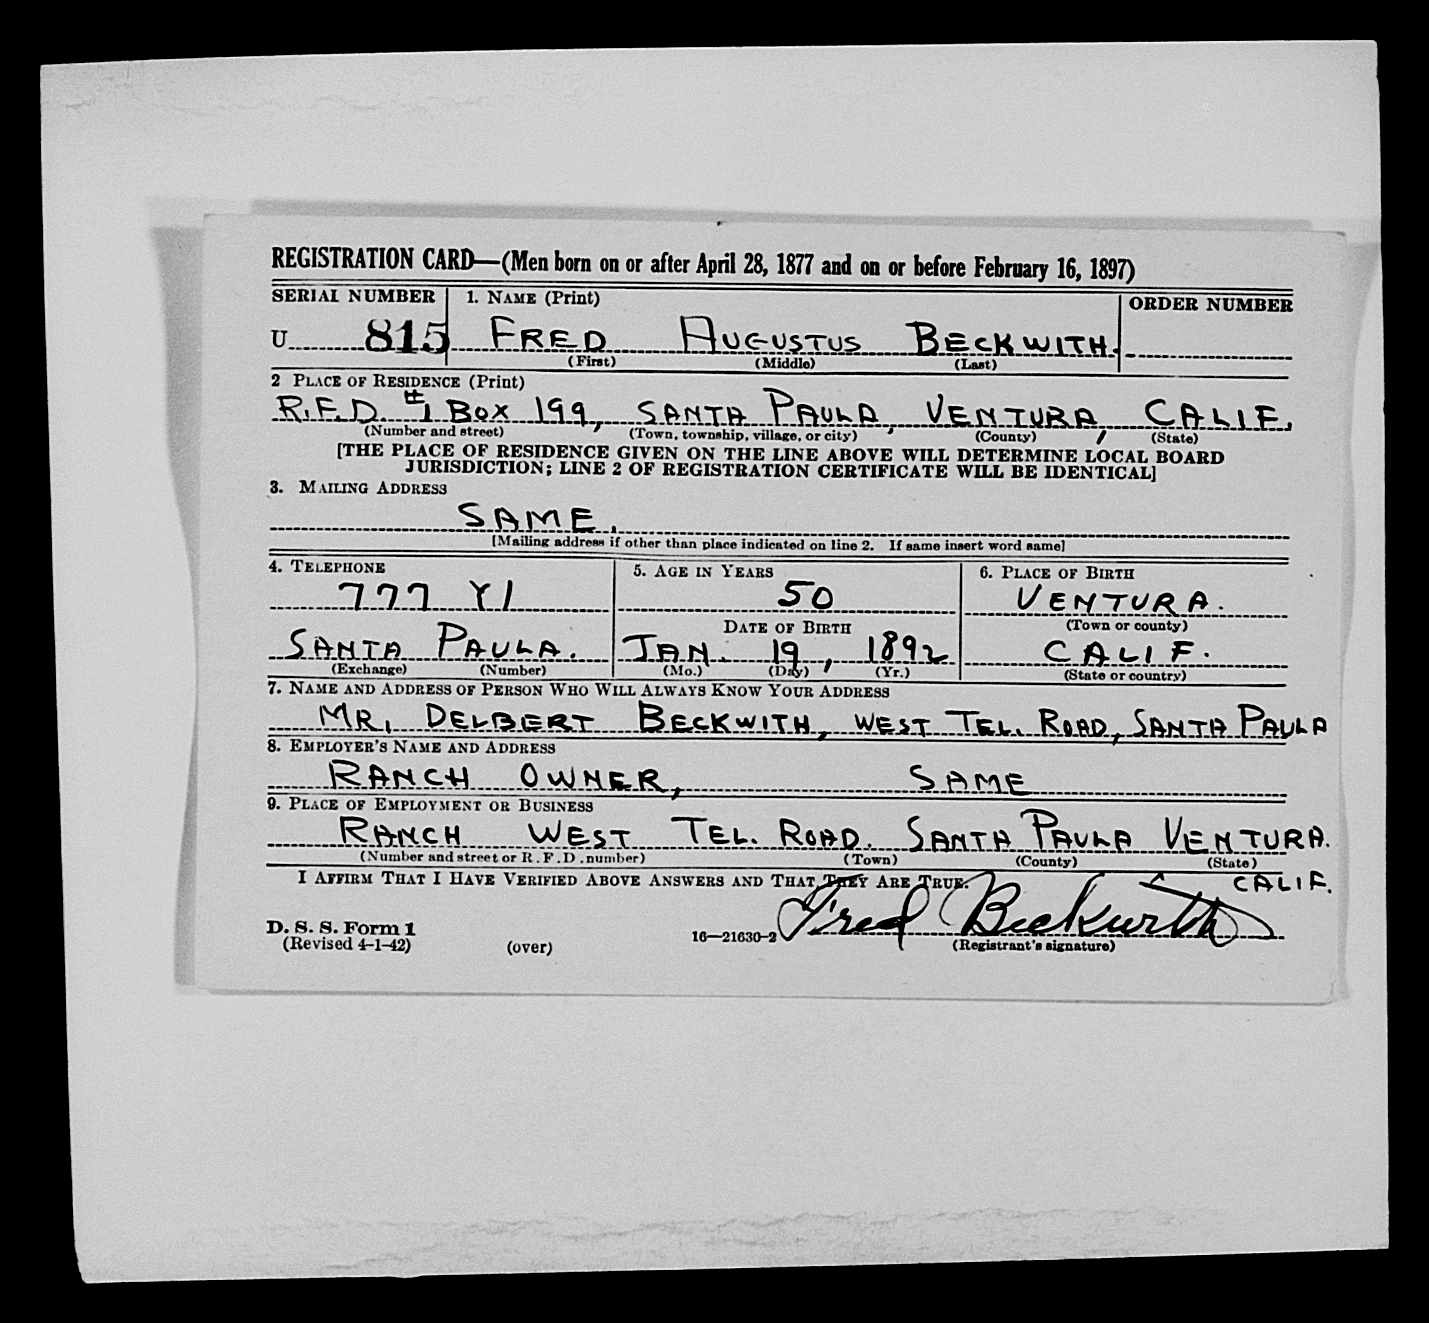 REGISTRATION CARD—(Men born on or after April 28, 1877 and on or before February 16, 1897)
SERIAL NUMBER 1. NAME (Print) ORDER NUMBER
U 815 FRED AUGUSTUS BECKWITH.
(First) (Middle) (Last)
2 PLACE OF RESIDENCE (Print)
R.F.D. #1 BOX 199, SANTA PAULA, VENTURA, CALIF.
(Number and street) (Town, township, village, or city) (County) (State)
[THE PLACE OF RESIDENCE GIVEN ON THE LINE ABOVE WILL DETERMINE LOCAL BOARD
JURISDICTION; LINE 2 OF REGISTRATION CERTIFICATE WILL BE IDENTICAL]
3. MAILING ADDRESS
SAME.
[Mailing address if other than place indicated on line 2. If same insert word same]
4. TELEPHONE 5. AGE IN YEARS 6. PLACE OF BIRTH
777 Y1 50 VENTURA.
DATE OF BIRTH (Town or county)
SANTA PAULA. JAN. 19, 1892 CALIF.
(Exchange) (Number) (Mo.) (Day) (Yr.) (State or country)
7. NAME AND ADDRESS OF PERSON WHO WILL ALWAYS KNOW YOUR ADDRESS
MR. DELBERT BECKWITH, WEST TEL. ROAD, SANTA PAULA
8. EMPLOYER'S NAME AND ADDRESS
RANCH OWNER, SAME
9. PLACE OF EMPLOYMENT OR BUSINESS
RANCH WEST TEL. ROAD. SANTA PAULA VENTURA.
(Number and street or R.F.D. number) (Town) (County) (State)
I AFFIRM THAT I HAVE VERIFIED ABOVE ANSWERS AND THAT THEY ARE TRUE. CALIF.
D. S. S. Form 1 Fred Beckwith
(Revised 4-1-42) (over) 16—21630-2 (Registrant's signature)